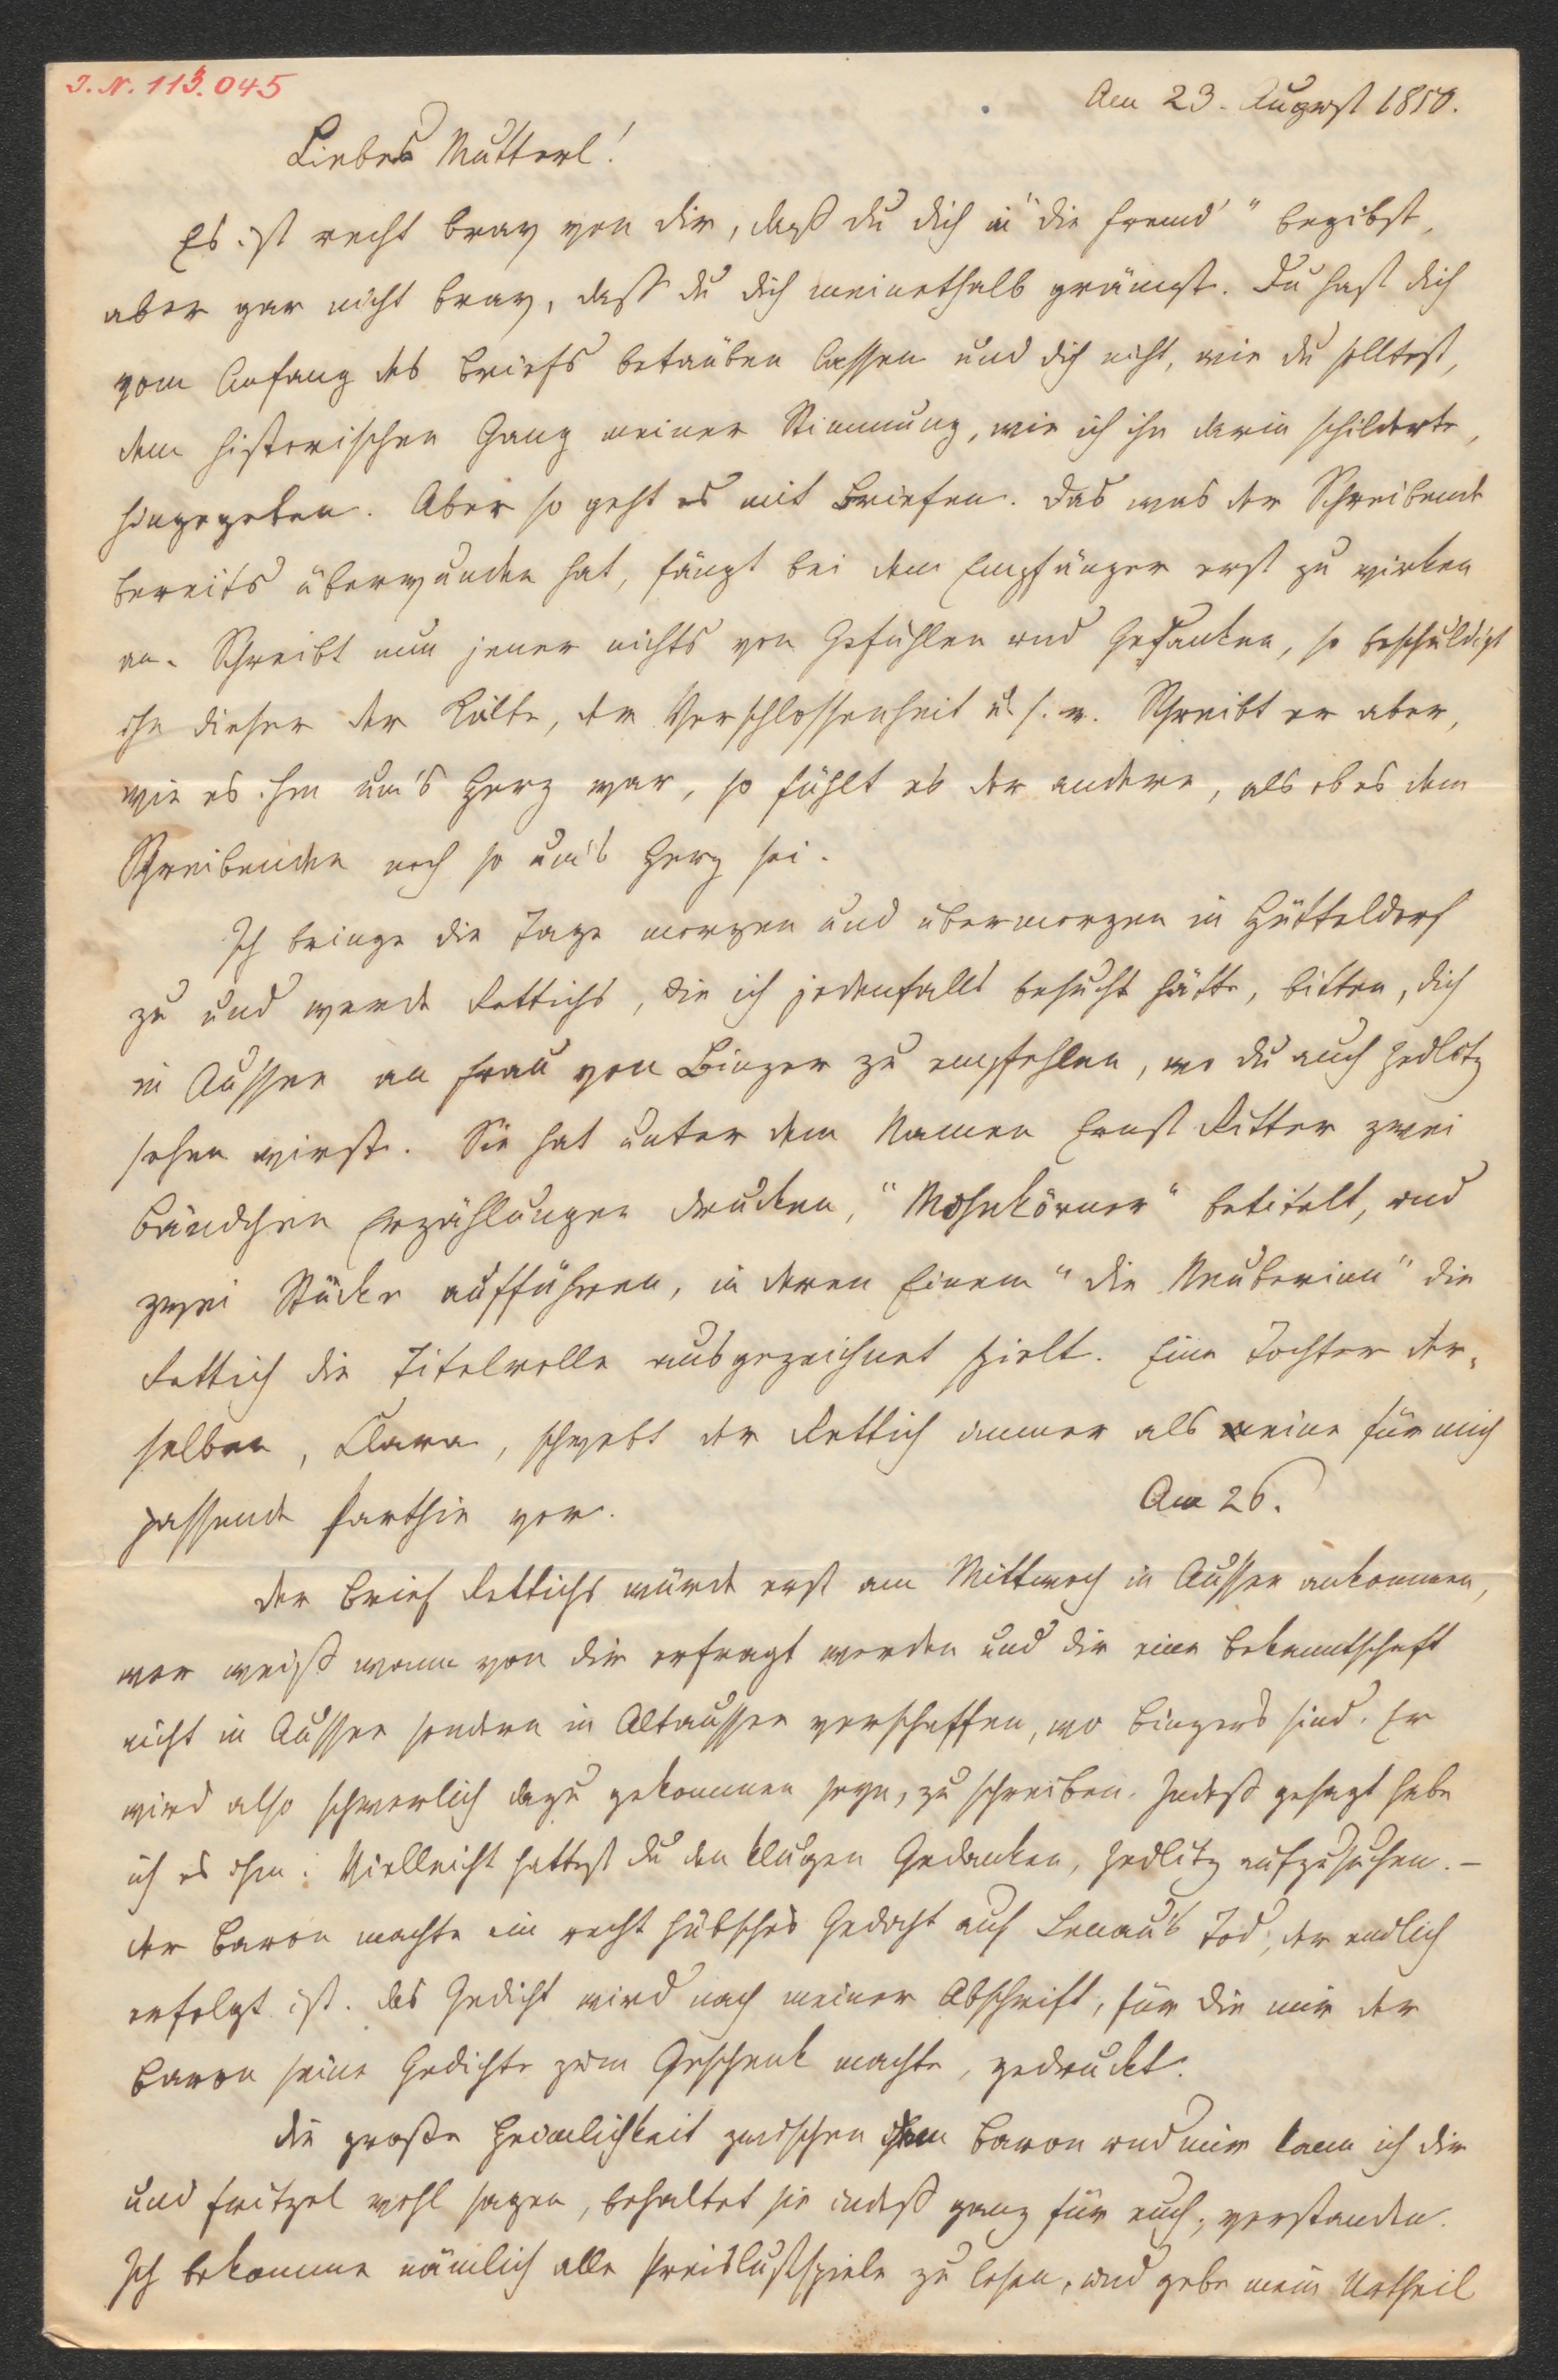 I. N. 113.045
Am 23. August 1850.
Liebes Mutterl!
Es ist recht brav von dir, daß du dich in "die Fremd'" begibst,
aber gar nicht brav, daß du dich meinethalb grämst. Du hast dich
vom Anfang des Briefs betäuben lassen und dich nicht, wie du solltest,
dem historischen Gang meiner Stimmung, wie ich ihn darin schilderte,
hingegeben. Aber so geht es mit Briefen. Das was der Schreibende
bereits überwunden hat, fängt bei dem Empfänger erst zu wirken
an. Schreibt nun jener nichts von Gefühlen und Gedanken, so beschuldigt
ihn dieser der Kälte, der Verschlossenheit u. s. w. Schreibt er aber,
wie es ihm um's Herz war, so fühlt es der andere, als ob es dem
Schreibenden noch so um's Herz sei.
Ich bringe die Tage morgen und übermorgen in Hütteldorf
zu und werde Rettichs, die ich jedenfalls besucht hätte, bitten, dich
in Aussee an Frau von Binzer zu empfehlen, wo du auch Zedlitz
sehen wirst. Sie hat unter dem Namen Ernst Ritter zwei
Bändchen Erzählungen drucken, "Mohnkörner" betitelt, und
zwei Stücke aufführen, in deren Einem "die Neuberinn" die
Rettich die Titelrolle ausgezeichnet spielt. Eine Tochter der-
selben, Clara, schwebt der Rettich immer als eine für mich
passende Parthie vor.
Am 26.
Der Brief Rettichs würde erst am Mittwoch in Aussee ankommen,
wer weiß wann von dir erfragt werden und dir eine Bekanntschaft
nicht in Aussee sondern in Altaussee verschaffen, wo Binzers sind. Er
wird also schwerlich dazu gekommen seyn, zu schreiben. Indeß gesagt habe
ich es ihm. Vielleicht hattest du den klugen Gedanken, Zedlitz aufzusuchen. –
Der Baron machte ein recht hübsches Gedicht auf Lenau's Tod, der endlich
erfolgt ist. Das Gedicht wird nach meiner Abschrift, für die mir der
Baron seine Gedichte zum Geschenk machte, gedruckt.
Die große Heimlichkeit zwischen dem Baron und mir kann ich dir
und Fritzel wohl sagen, behaltet sie indeß ganz für euch, verstanden.
Ich bekomme nämlich alle Preislustspiele zu lesen, und gebe mein Urtheil